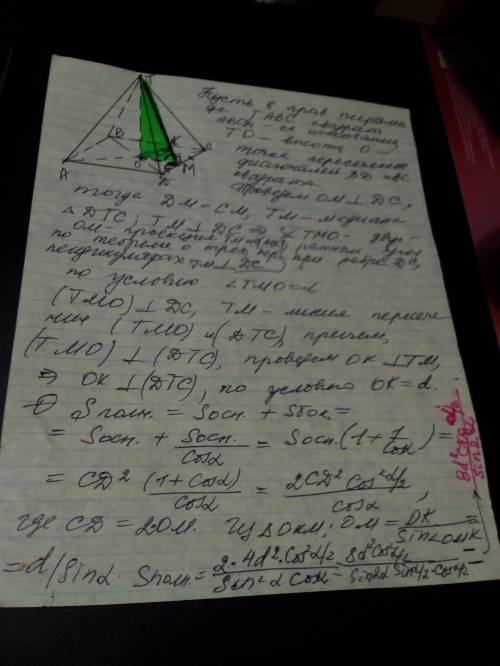 T
B
C
K
A
O
M
D
Пусть в прав. пирами-
де TABC квадрат
ABCD – ее основание
TO – высота, O –
точка пересечения
диагоналей BD и AC
квадрата.
Проведем OM ⊥ DC,
тогда DM = CM, TM – медиана
△ DTC; TM ⊥ DC ⇒ ∠ TMO – дву-
OM – проекция TM гранный угол
по теореме о трех пер- при ребре DC,
пендикулярах TM ⊥ DC
по условию ∠TMO = α
(TMO) ⊥ DC, TM – линия пересече
ния (TMO) и (DTC), причем,
(TMO) ⊥ (DTC), проведем OK ⊥ TM,
⇒ OK ⊥ (DTC), по условию OK = d.
Sполн. = Sосн. + Sбок. =
= Sосн. + Sосн./cosα = Sосн. (1 + 1/cosα) =
= CD² (1 + cosα)/cosα = 2CD² cos² α/2 / cosα,
где CD = 2OM. Из △OKM; OM = OK/sin∠OMK =
= d/sinα. Sполн. = 2·4d²·cos² α/2 / sin²α cosα = 8d² cos² α/2 / sin2α sin α/2·cos α/2 =